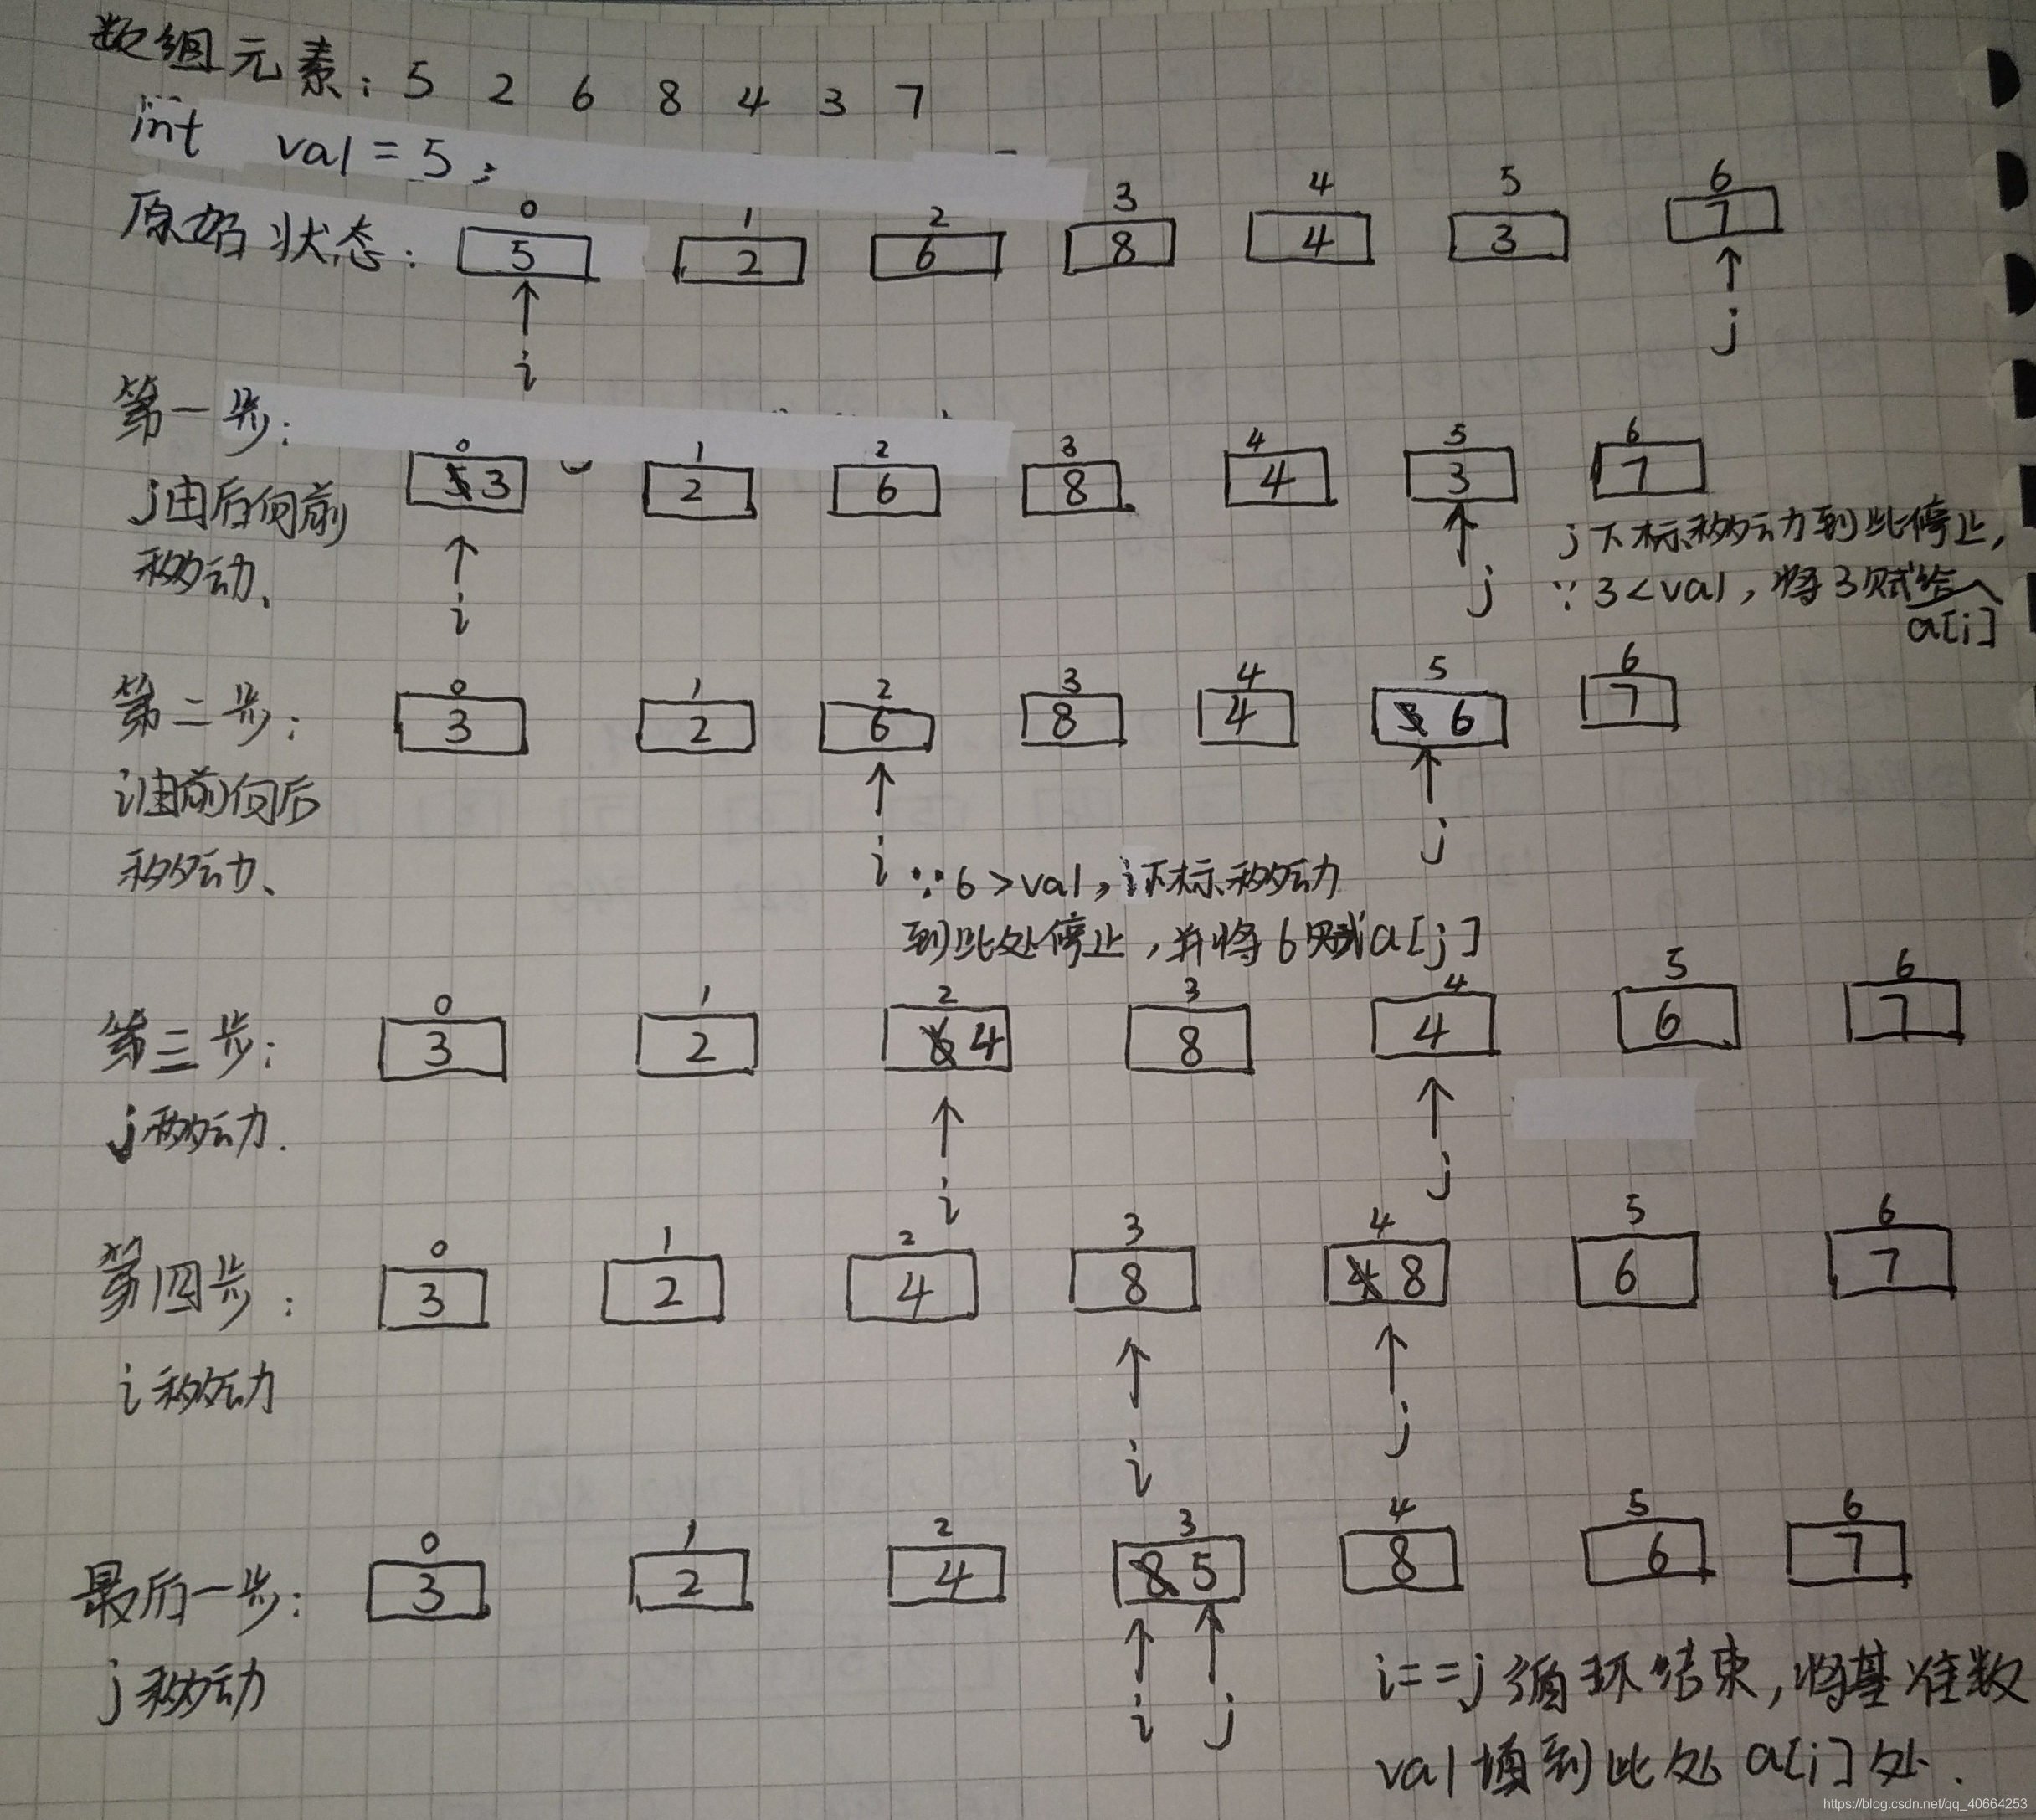 数组元素: 5 2 6 8 4 3 7
int val = 5;
0 1 2 3 4 5 6
原始状态: 5 2 6 8 4 3 7
i j
第一步:
0 1 2 3 4 5 6
5 3 2 6 8 4 3 7
j由后向前
移动.
i j
j下标移动到此停止,
∵3<val,将3赋给
a[i]
0 1 2 3 4 5 6
第二步: 3 2 6 8 4 3 6 7
i由前向后
移动.
i j
∵6>val,i下标移动
到此处停止,并将6赋a[j]
0 1 2 3 4 5 6
第三步: 3 2 6 4 8 4 6 7
j移动.
i j
0 1 2 3 4 5 6
第四步: 3 2 4 8 4 8 6 7
i移动
i j
0 1 2 3 4 5 6
最后一步: 3 2 4 8 5 8 6 7
j移动
i j
i==j循环结束,将基准数
val填到此处a[i]处.
https://blog.csdn.net/qq_40664253